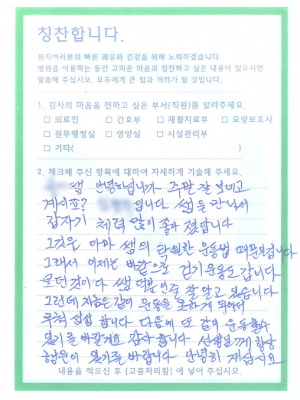 칭찬합니다.
환자여러분의 빠른 쾌유와 건강을 위해 노력하겠습니다.
병원을 이용하는 동안 고마운 마음과 칭찬하고 싶은 내용이 있으시면
말씀해 주십시오. 모두에게 큰 힘과 격려가 될 것입니다.
1. 감사의 마음을 전하고 싶은 부서(직원)를 알려주세요.
□ 의료진 □ 간호부 □ 재활치료부 □ 요양보호사
□ 원무행정실 □ 영양실 □ 시설관리부
□ 기타( )
2. 체크해 주신 항목에 대하여 자세하게 기술해 주세요.
쌤 안녕하십니까 주말 잘 보내고
계시죠? 입니다 쌤을 만나서
갑자기 체력 많이 좋아 졌습니다
그것은 아마 쌤의 탁월한 운동법 때문일겁니다
그래서 이제는 바깥으로 걷기운동도 갑니다
모든것이다 쌤 덕분인줄 잘 알고 있습니다
그런데 지금은 같이 운동을 못하게 되어서
무척 섭섭 합니다 다음에 또 같이 운동할수
있기를 바랄게요 감사합니다 선생님께 항상
행운이 있기를 바랍니다 안녕히 계십시요
내용을 적으신 후 [고충처리함] 에 넣어 주십시오.